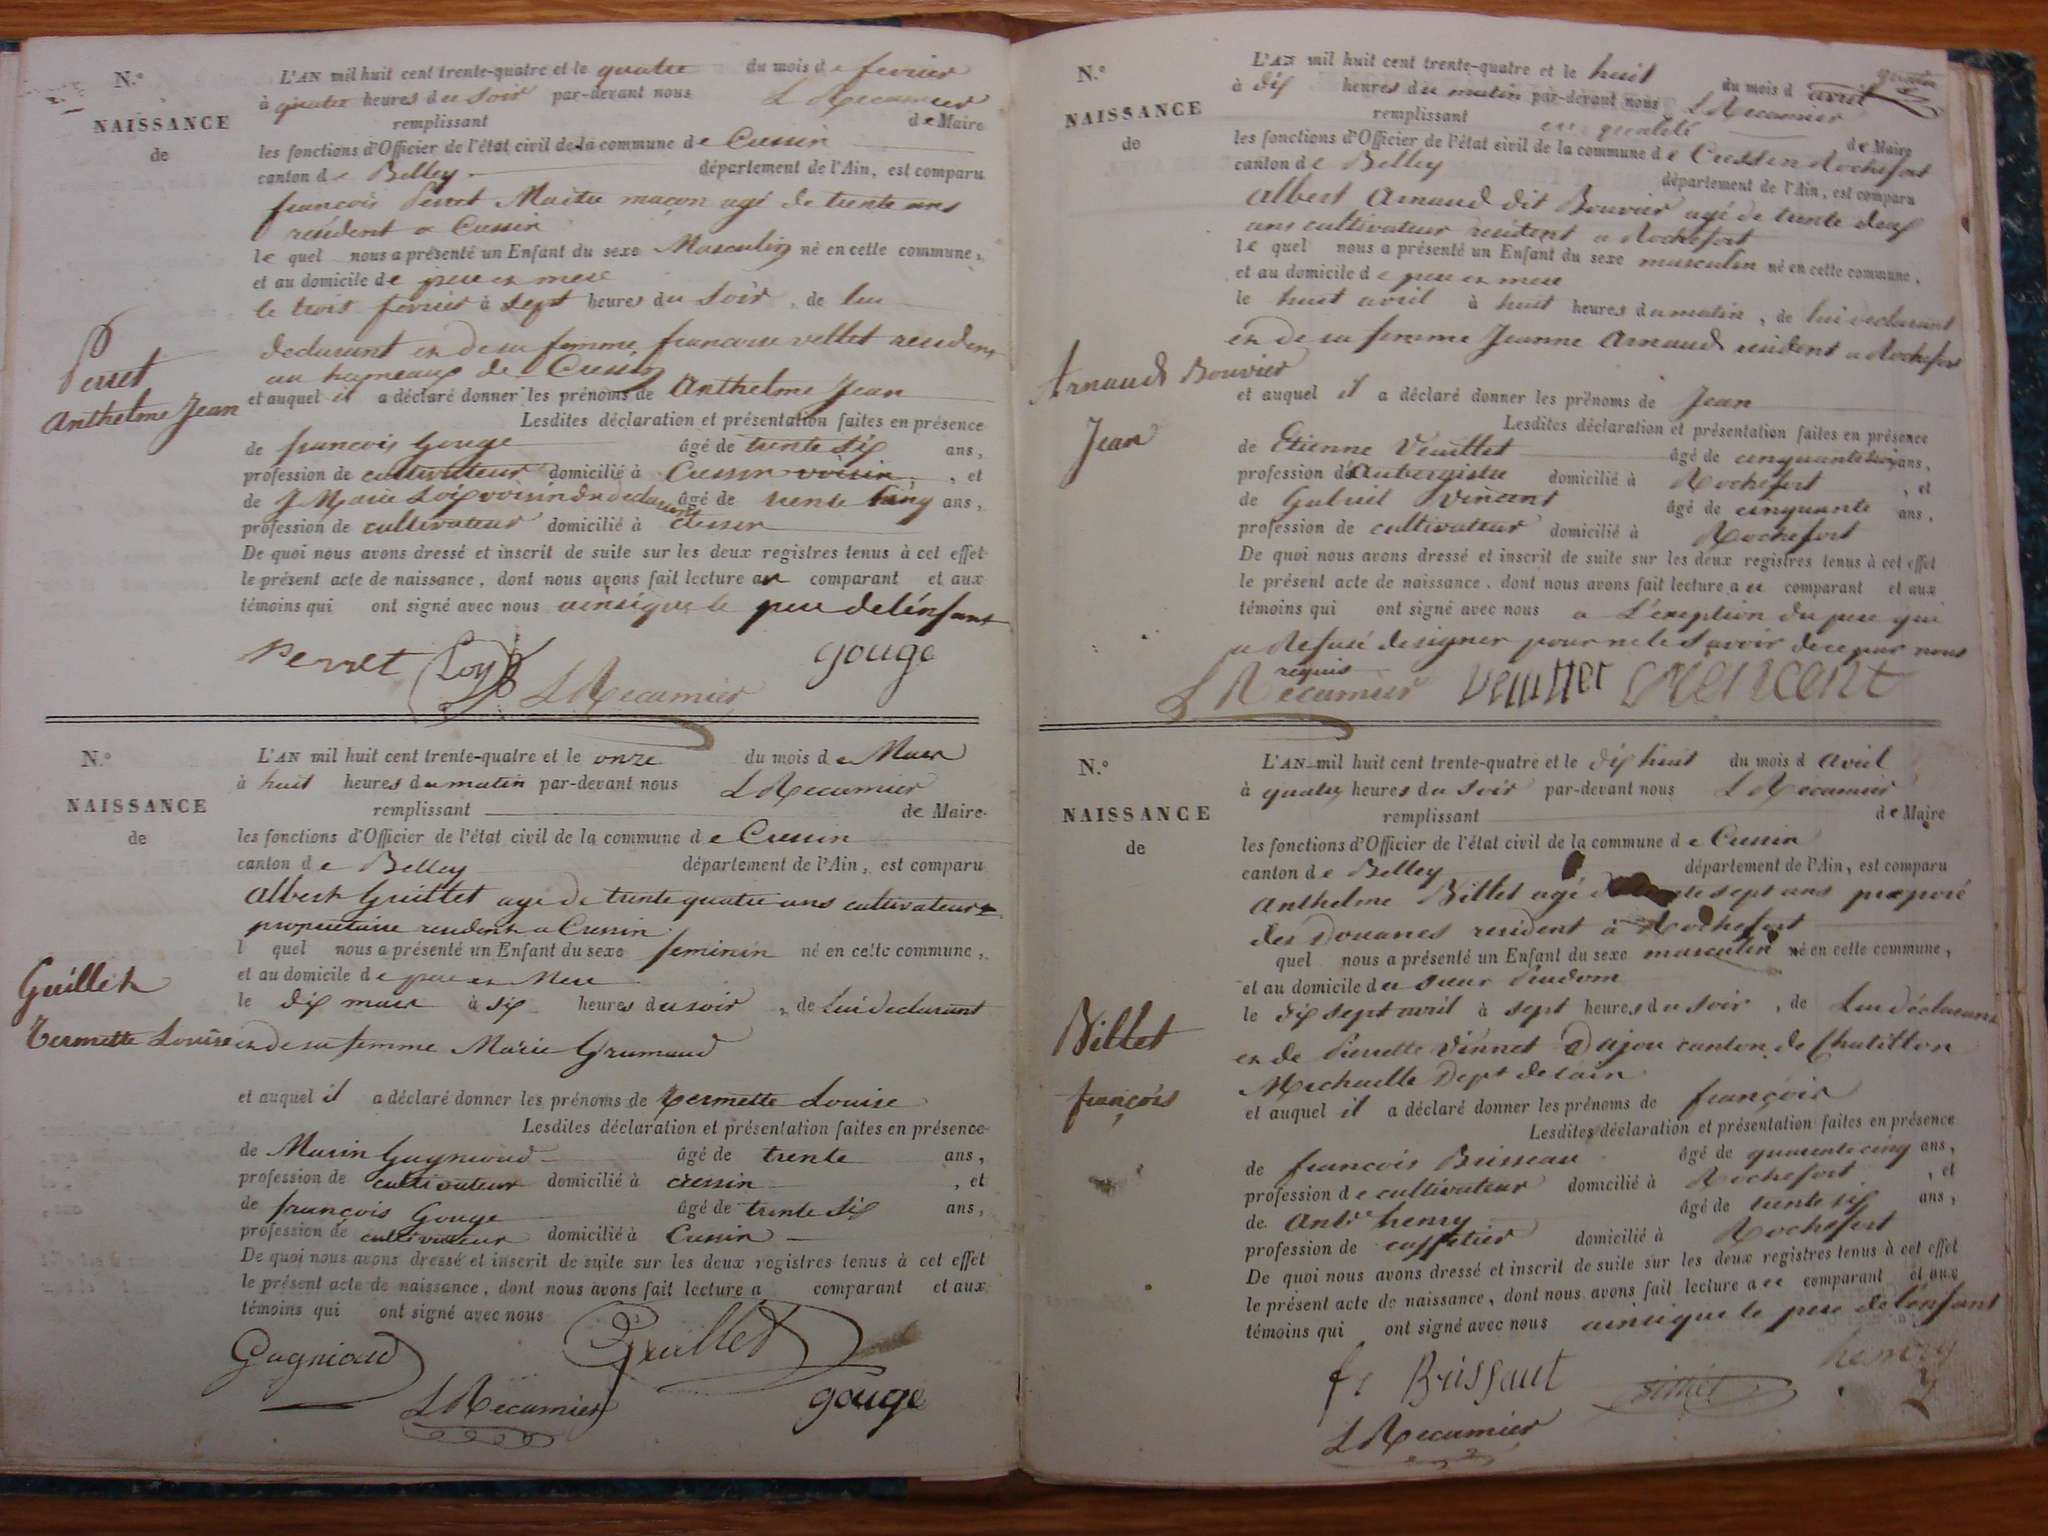 N.º
NAISSANCE
de
Perret
Anthelme Jean
L'AN mil huit cent trente-quatre et le quatre du mois de fevrier
à quatre heures du soir par-devant nous L Recamier
remplissant de Maire
les fonctions d'Officier de l'état civil de la commune de Cressin
canton de Belley département de l'Ain, est comparu
françois Perret Maitre maçon agé de trente ans
resident a Cressin
le quel nous a présenté un Enfant du sexe Masculin né en cette commune,
et au domicile de pere et mere
le trois fevrier à sept heures du soir, de lui
declarant et de sa femme francoise vellet resident
au hameaux de Cressin
et auquel il a déclaré donner les prénoms de Anthelme Jean
Lesdites déclaration et présentation faites en présence
de francois Gouge âgé de trente six ans,
profession de cultivateur domicilié à Cressin voisin, et
de J Marie Loÿ voisin du declarant âgé de trente cinq ans,
profession de cultivateur domicilié à Cressin
De quoi nous avons dressé et inscrit de suite sur les deux registres tenus à cet effet
le présent acte de naissance, dont nous avons fait lecture au comparant et aux
témoins qui ont signé avec nous ainsi que le pere de l'enfant
Perret Loÿ gouge
L Recamier
N.º
NAISSANCE
de
Guillet
Permette Louise
L'AN mil huit cent trente-quatre et le onze du mois de Mars
à huit heures du matin par-devant nous L Recamier
remplissant de Maire
les fonctions d'Officier de l'état civil de la commune de Cressin
canton de Belley département de l'Ain, est comparu
Albert Guillet age de trente quatre ans cultivateur
proprietaire resident a Cressin
l quel nous a présenté un Enfant du sexe feminin né en cette commune,
et au domicile de pere et Mere
le dix mars à six heures du soir, de lui declarant
et de sa femme Marie Grumaud
et auquel il a déclaré donner les prénoms de Permette Louise
Lesdites déclaration et présentation faites en présence
de Marin Gagnioud âgé de trente ans,
profession de cultivateur domicilié à cressin, et
de françois Gouge âgé de trente six ans,
profession de cultivateur domicilié à Cressin
De quoi nous avons dressé et inscrit de suite sur les deux registres tenus à cet effet
le présent acte de naissance, dont nous avons fait lecture a comparant et aux
témoins qui ont signé avec nous
Gagnioud Guillet
L Recamier gouge
N.º
NAISSANCE
de
Arnaud Bouvier
Jean
L'AN mil huit cent trente-quatre et le huit du mois d avril
à dix heures du matin par-devant nous L Recamier
remplissant en qualité de Maire
les fonctions d'Officier de l'état civil de la commune de Cressin Rochefort
canton de Belley département de l'Ain, est comparu
Albert Arnaud dit Bouvier agé de trente deux
ans cultivateur resident a Rochefort
le quel nous a présenté un Enfant du sexe masculin né en cette commune,
et au domicile de pere et mere
le huit avril à huit heures du matin, de lui declarant
et de sa femme Jeanne Arnaud resident a Rochefort
et auquel il a déclaré donner les prénoms de Jean
Lesdites déclaration et présentation faites en présence
de Etienne Veuillet âgé de cinquante ans,
profession d'Aubergiste domicilié à Rochefort, et
de Gabriel Vincent âgé de cinquante ans,
profession de cultivateur domicilié à Rochefort
De quoi nous avons dressé et inscrit de suite sur les deux registres tenus à cet effet
le présent acte de naissance, dont nous avons fait lecture au comparant et aux
témoins qui ont signé avec nous a L'exeption du pere qui
a Refusé de signer pour ne le savoir de ce par nous
requis
L Recamier Veuillet Vencent
N.º
NAISSANCE
de
Billet
françois
L'AN mil huit cent trente-quatre et le dix huit du mois d avril
à quatre heures du soir par-devant nous L Recamier
remplissant de Maire
les fonctions d'Officier de l'état civil de la commune de Cressin
canton de Belley département de l'Ain, est comparu
Anthelme Billet agé sept ans preposé
des Douanes resident à Rochefort
quel nous a présenté un Enfant du sexe masculin né en cette commune,
et au domicile du sieur Pindom
le dix sept avril à sept heures du soir, de Lui déclarant
et de Pierrette Vinnet Dajou canton de Chatillon
Michaille Dept de lain
et auquel il a déclaré donner les prénoms de françois
Lesdites déclaration et présentation faites en présence
de francois Brisseau âgé de quarante cinq ans,
profession de cultivateur domicilié à Rochefort, et
de Ant.e henry âgé de trente six ans,
profession de caffetier domicilié à Rochefort
De quoi nous avons dressé et inscrit de suite sur les deux registres tenus à cet effet
le présent acte de naissance, dont nous avons fait lecture au comparant et aux
témoins qui ont signé avec nous ainsi que le pere de l'enfant
fs Brissaut henry
L Recamier